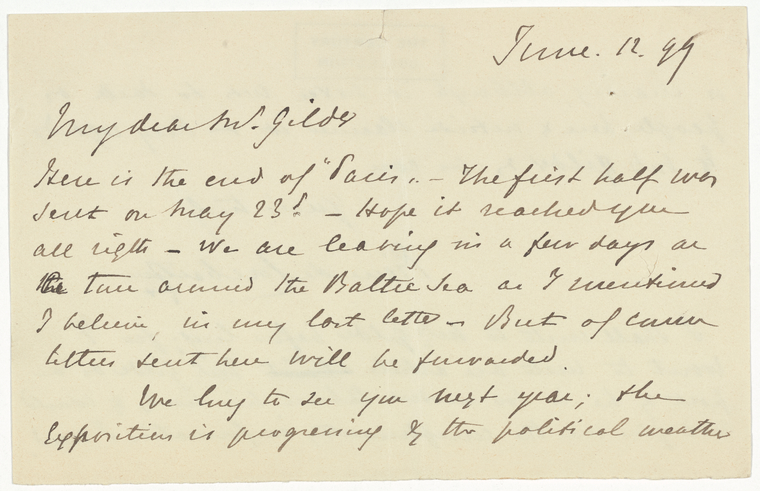 June. 12. 99
My dear Mr. Gilder
Here is the end of "Paris". - The first half was
sent on May 23d. - Hope it reached you
all right - We are leaving in a few days on
tour around the Baltic Sea as I mentioned
I believe, in my last letter - But of course
letters sent here will be forwarded.
We hug to see you next year; the
Exposition is progressing & the political weather